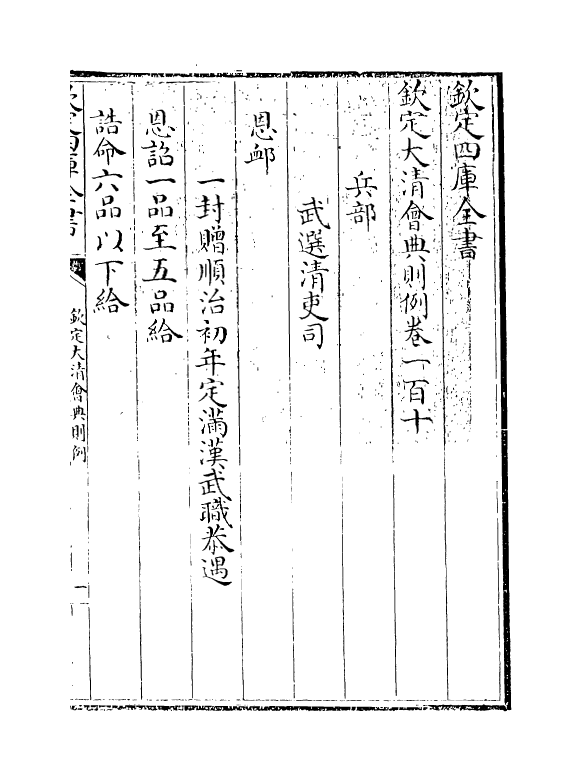 欽定四庫全書
欽定大清會典則例卷一百十
兵部
武選清吏司
恩卹
一封贈順治初年定滿漢武職恭遇
恩詔一品至五品給
誥命六品以下給
欽定四庫全書
欽定大清會典則例
一